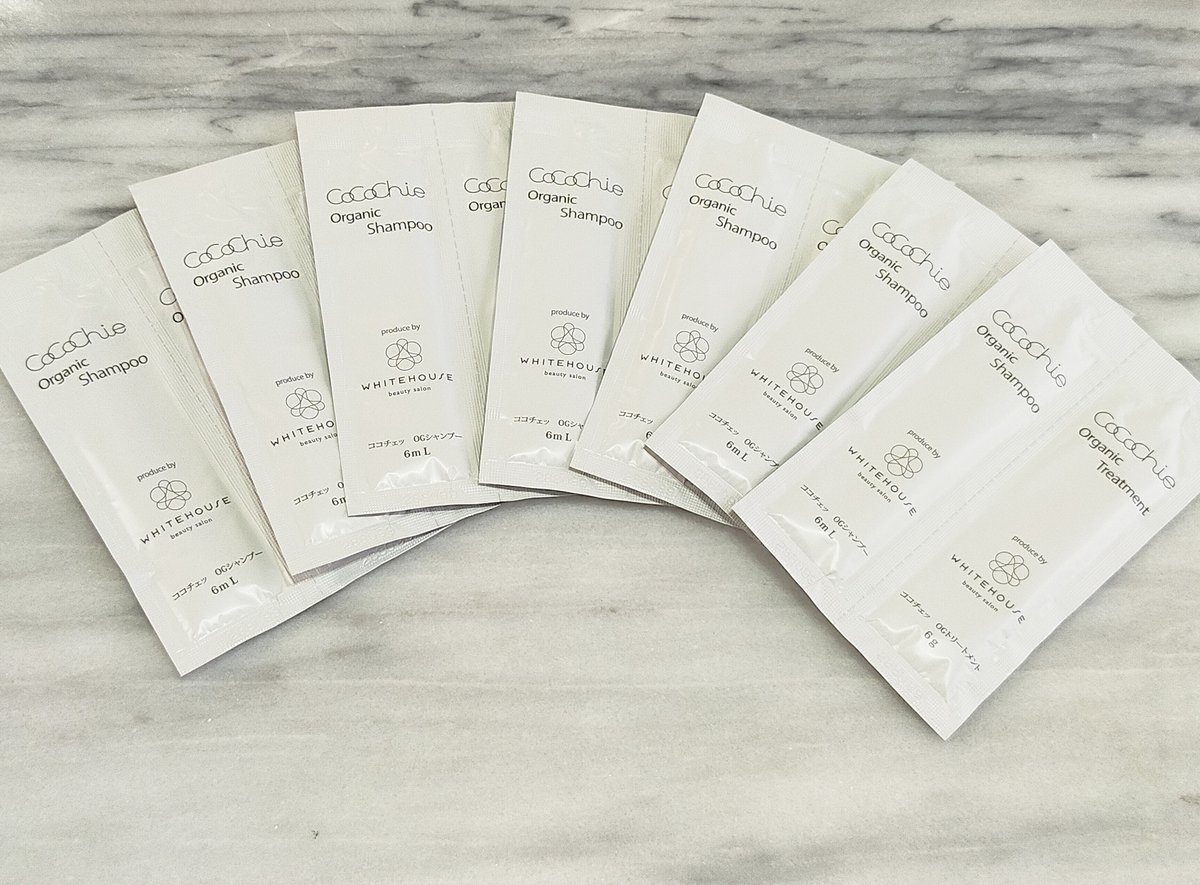 CoCoChie
Organic
Shampoo
produce by
WHITEHOUSE
beauty salon
ココチェッ OGシャンプー
6mL
CoCoChie
Organic
Shampoo
produce by
WHITEHO
beauty
ココチェッ
6m
CoCoChie
Organic
Shampoo
produce by
WHITEHOUSE
beauty salon
ココチェッ OGシャンプー
6mL
CoCo
Organ
CoCoChie
Organic
Shampoo
produce by
WHITEHOUSE
beauty salon
ココチェッ OGシャン
6mL
CoCoChie
Organic
Shampoo
produce by
WHITEHOUSE
beauty salon
ココチェッ
6
CoCoChie
Organic
Shampoo
produce by
WHITEHOUSE
beauty salon
ココチェッ OGシャンプー
6mL
CoCoChie
Organic
Shampoo
produce by
WHITEHOUSE
beauty salon
ココチェッ OGシャンプー
6mL
CoCoChie
Organic
Treatment
produce by
WHITEHOUSE
beauty salon
ココチェッ OGトリートメント
6g